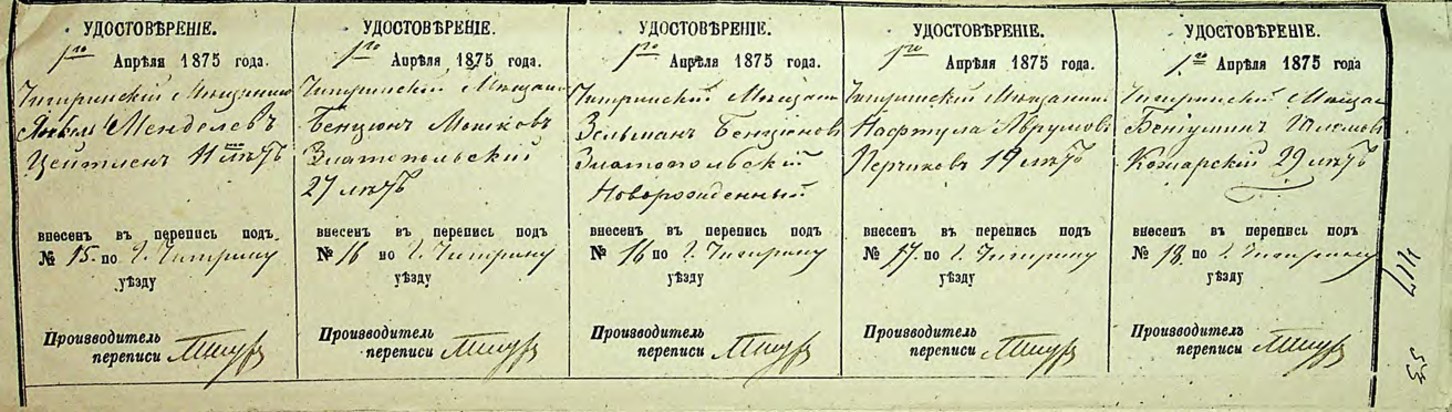 УДОСТОВѢРЕНІЕ.
1го Апрѣля 1875 года.
Чигиринскій Мѣщанинъ
Янкель Менделевъ
Цейтленъ 11 лѣтъ
внесенъ въ перепись подъ
№ 15. по г. Чигирину
уѣзду
Производитель
переписи
УДОСТОВѢРЕНІЕ.
1го Апрѣля 1875 года.
Чигиринскій Мѣщанин
Бенціонъ Мошковъ
Златопольскій
27 лѣтъ
внесенъ въ перепись подъ
№ 16 по г. Чигирину
уѣзду
Производитель
переписи
УДОСТОВѢРЕНІЕ.
1го Апрѣля 1875 года.
Чигиринскій Мѣщанин
Зельманъ Бенціоновъ
Златопольскій
Новорожденный
внесенъ въ перепись подъ
№ 16 по г. Чигирину
уѣзду
Производитель
переписи
УДОСТОВѢРЕНІЕ.
1го Апрѣля 1875 года.
Чигиринскій Мѣщанин
Нафтула Аврумовъ
Перчиковъ 19 лѣтъ
внесенъ въ перепись подъ
№ 17. по г. Чигирину
уѣзду
Производитель
переписи
УДОСТОВѢРЕНІЕ.
1го Апрѣля 1875 года
Чигиринскій Мѣщан
Беніуминъ Шлемовъ
Кожарскій 29 лѣтъ
внесенъ въ перепись подъ
№ 18. по г. Чигирину
уѣзду
Производитель
переписи